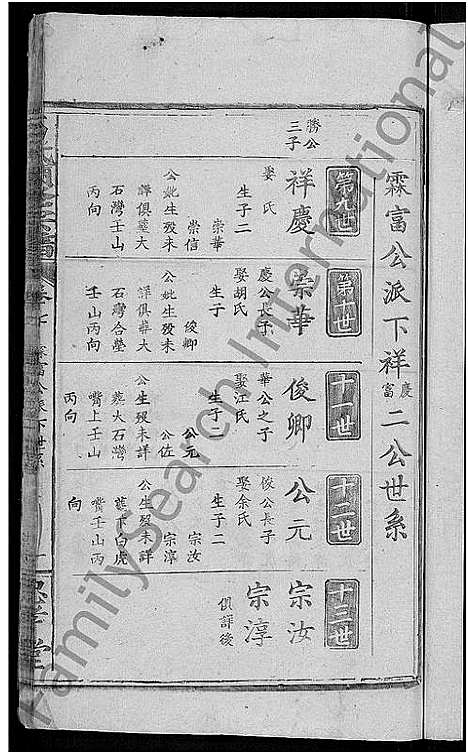 霖富公派下祥慶富二公世系
第九世
勝公三子
祥慶
娶氏
生子二
崇華
崇信
公妣生殁未
詳俱塟大
石灣壬山
丙向
第十世
崇華
慶公長子
娶胡氏
生子一
俊卿
公妣生殁未
詳俱塟大
石灣合塋
壬山丙向
十一世
俊卿
華公之子
娶江氏
生子二
公元
公佐
公生殁未詳
塟大石灣
嘴上壬山
丙向
十二世
公元
俊公長子
娶余氏
生子二
宗汝
宗淳
公生殁未詳
塟下白虎
嘴壬山丙
向
十三世
宗汝
宗淳
俱詳後
霖富公派下世系
堂
FamilySearch International